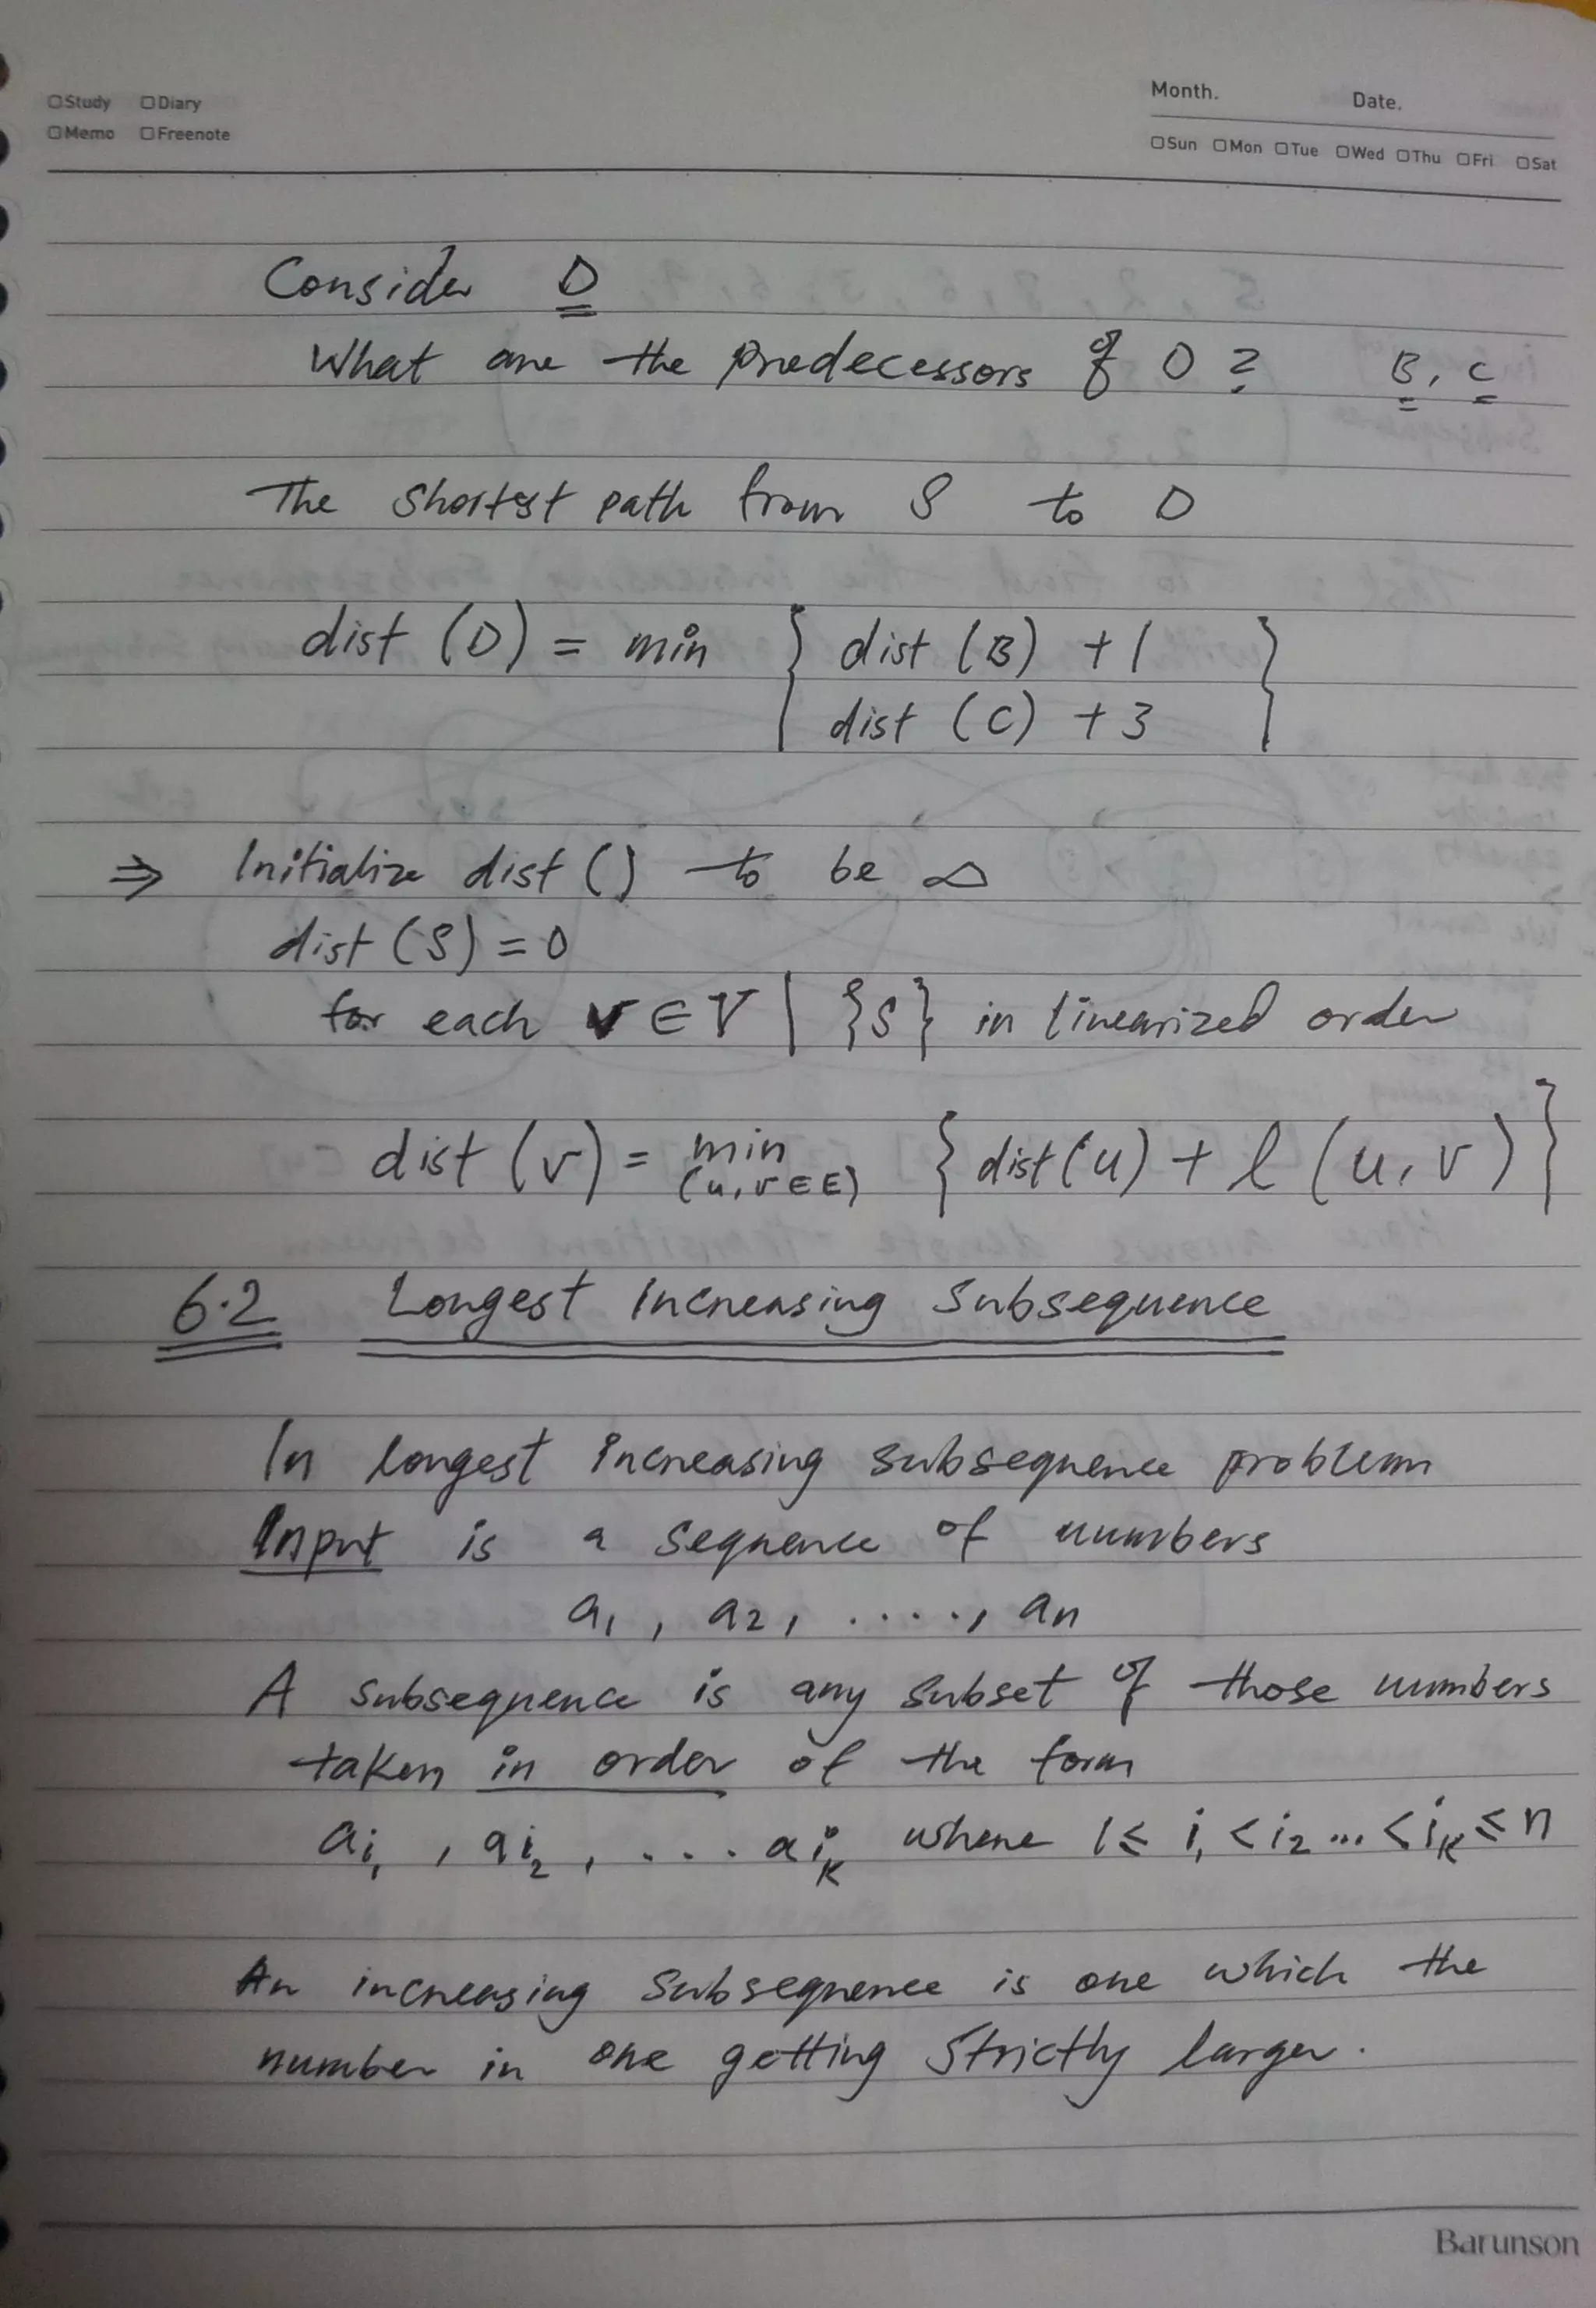 □Study □Diary
□Memo □Freenote
Month. Date.
□Sun □Mon □Tue □Wed □Thu □Fri □Sat
Consider D
What are the predecessors of D ? B, C
The shortest path from S to D
dist (D) = min { dist (B) + 1
dist (C) + 3 }
⇒ Initialize dist () to be ∞
dist (S) = 0
for each v ∈ V | {S} in linearized order
dist (v) = min {dist(u) + l (u, v)}
(u, v ∈ E)
6.2 Longest Increasing Subsequence
In longest increasing subsequence problem
Input is a sequence of numbers
a1, a2, ...., an
A subsequence is any subset of those numbers
taken in order of the form
ai1, ai2, .... aik where 1 ≤ i1 < i2 ... < ik ≤ n
An increasing subsequence is one which the
number in one getting strictly larger.
Barunson